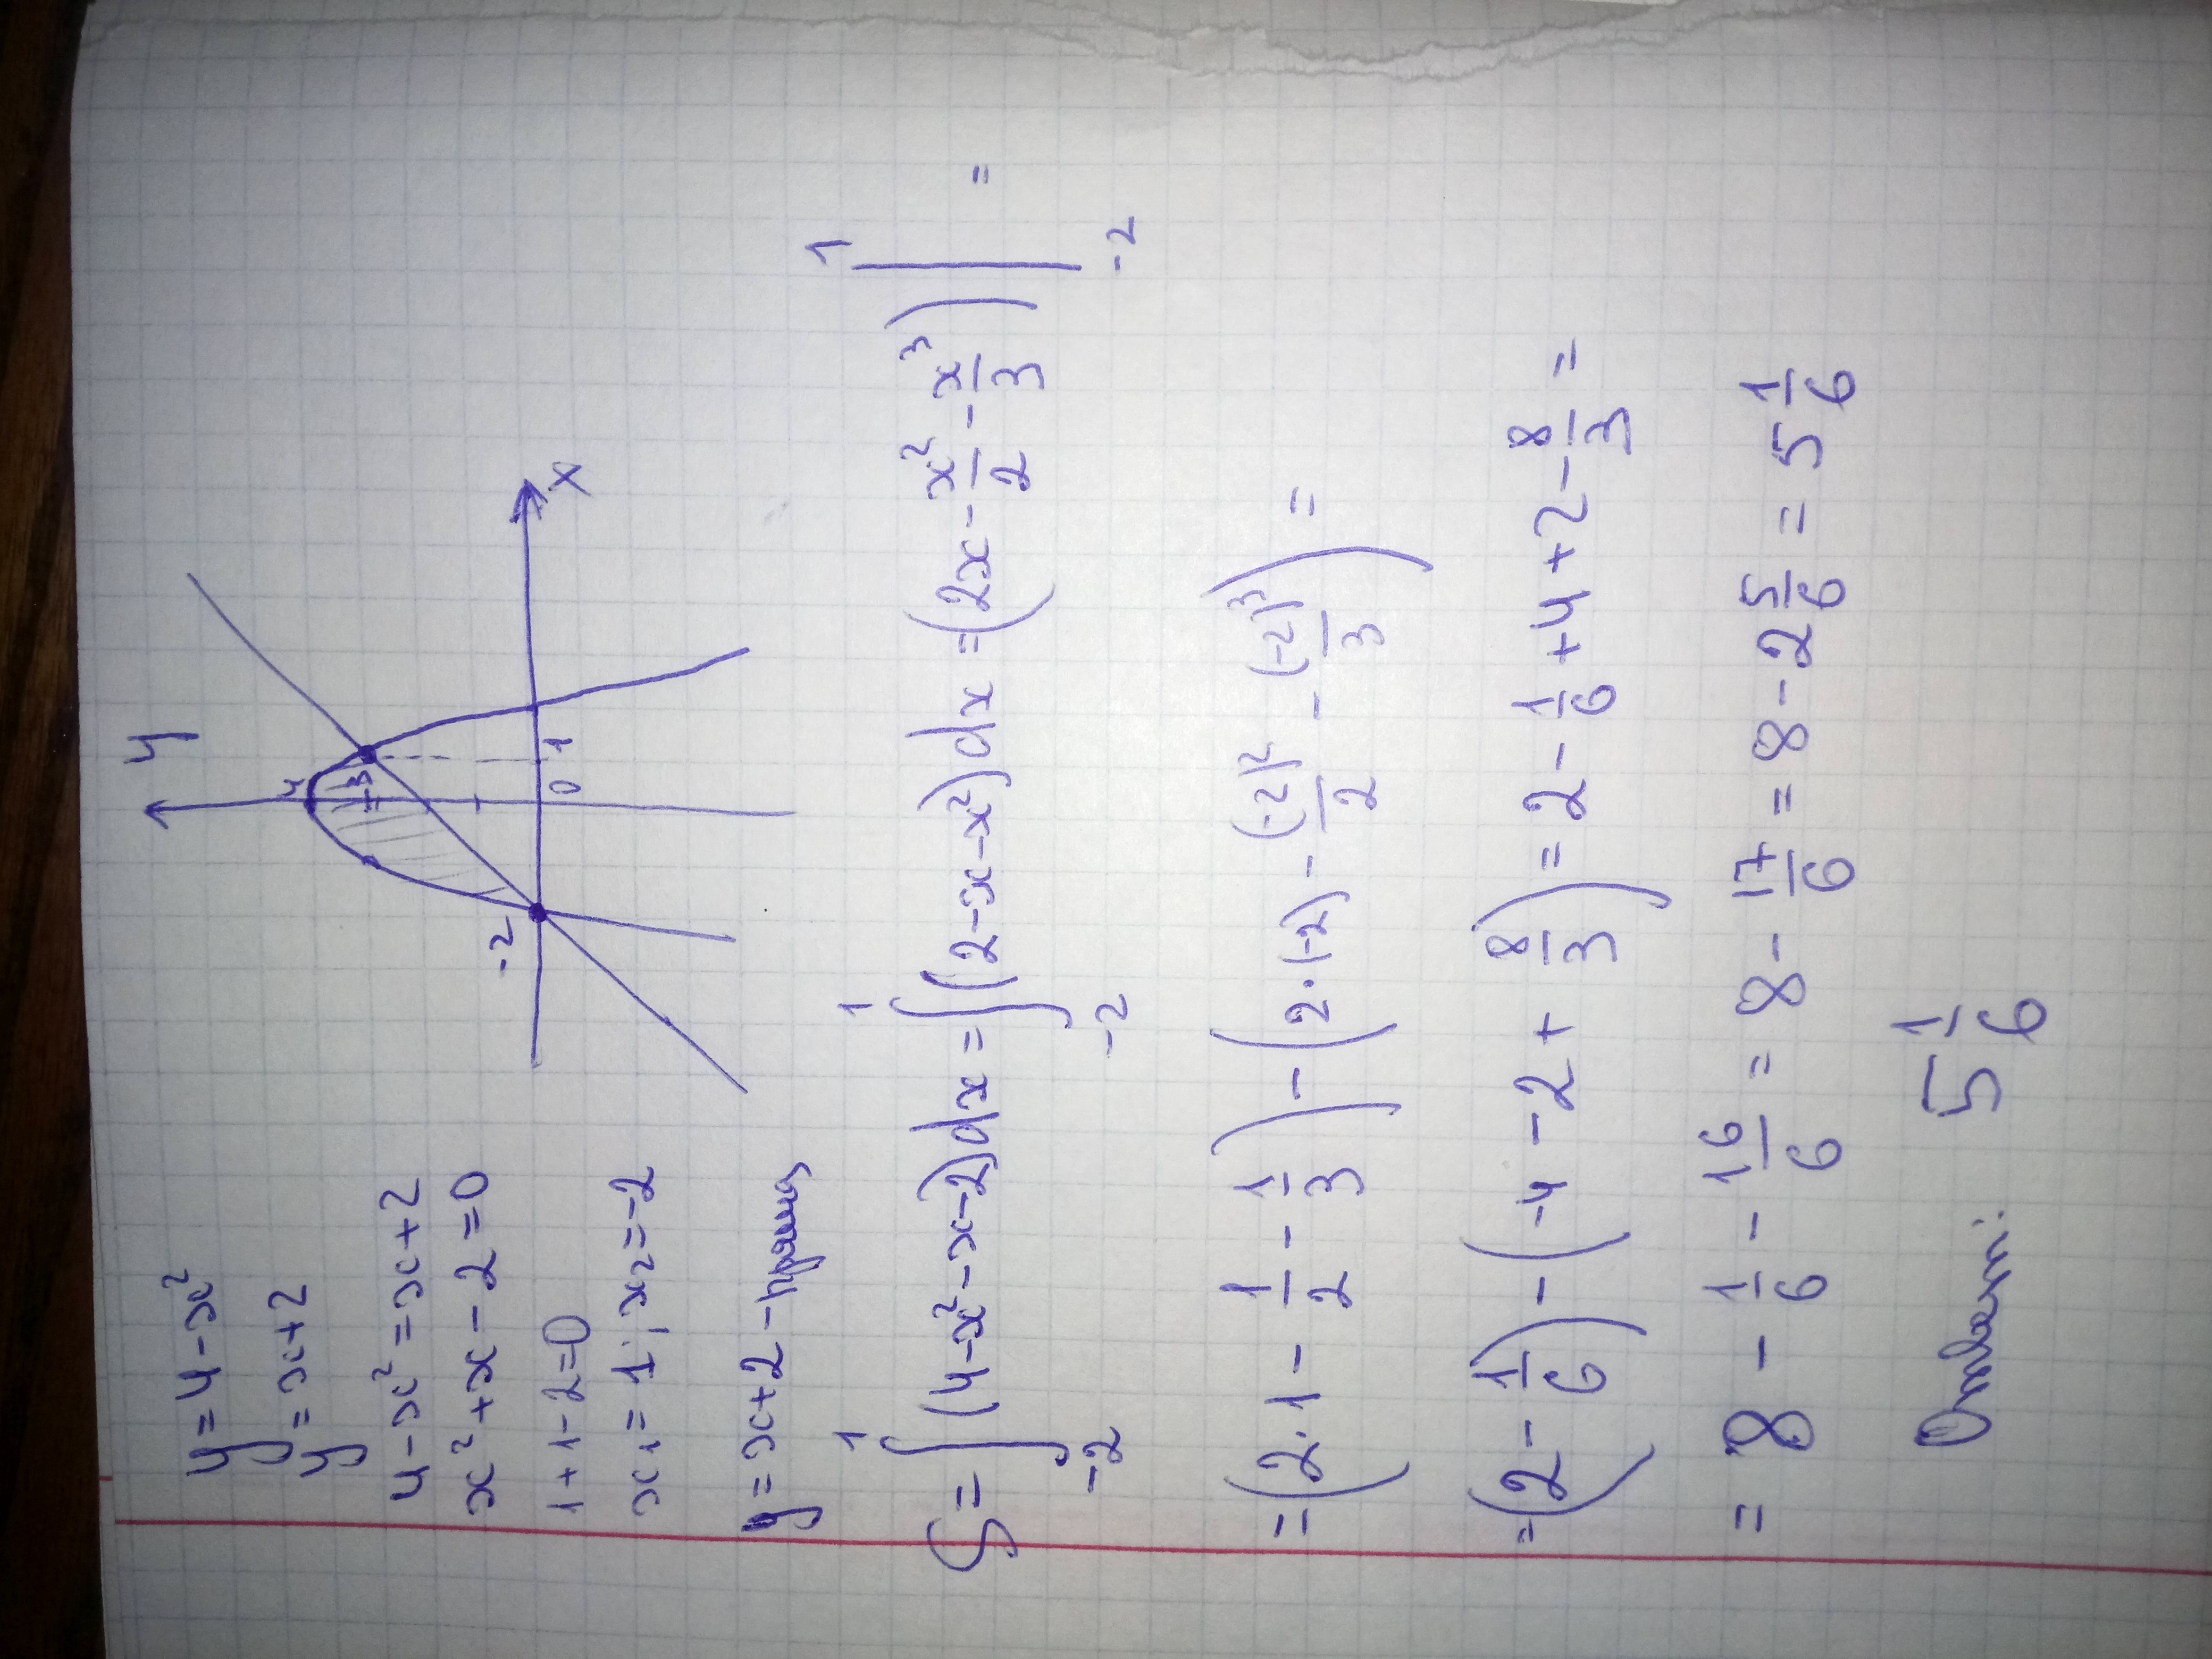 y = 4 - x²
y = x + 2
y
4 - x² = x + 2
x² + x - 2 = 0
1 + 1 - 2 = 0
x₁ = 1; x₂ = -2
y = x + 2 - прямая
y
4
3
-2
0
1
x
S = ∫₋₂¹ (4 - x² - x - 2) dx = ∫₋₂¹ (2 - x - x²) dx = (2x - x²/2 - x³/3) |₋₂¹ =
= (2·1 - 1/2 - 1/3) - (2·(-2) - (-2)²/2 - (-2)³/3) =
= (2 - 1/6) - (-4 - 2 + 8/3) = 2 - 1/6 + 4 + 2 - 8/3 =
= 8 - 1/6 - 16/6 = 8 - 17/6 = 8 - 2 5/6 = 5 1/6
Ответ: 5 1/6